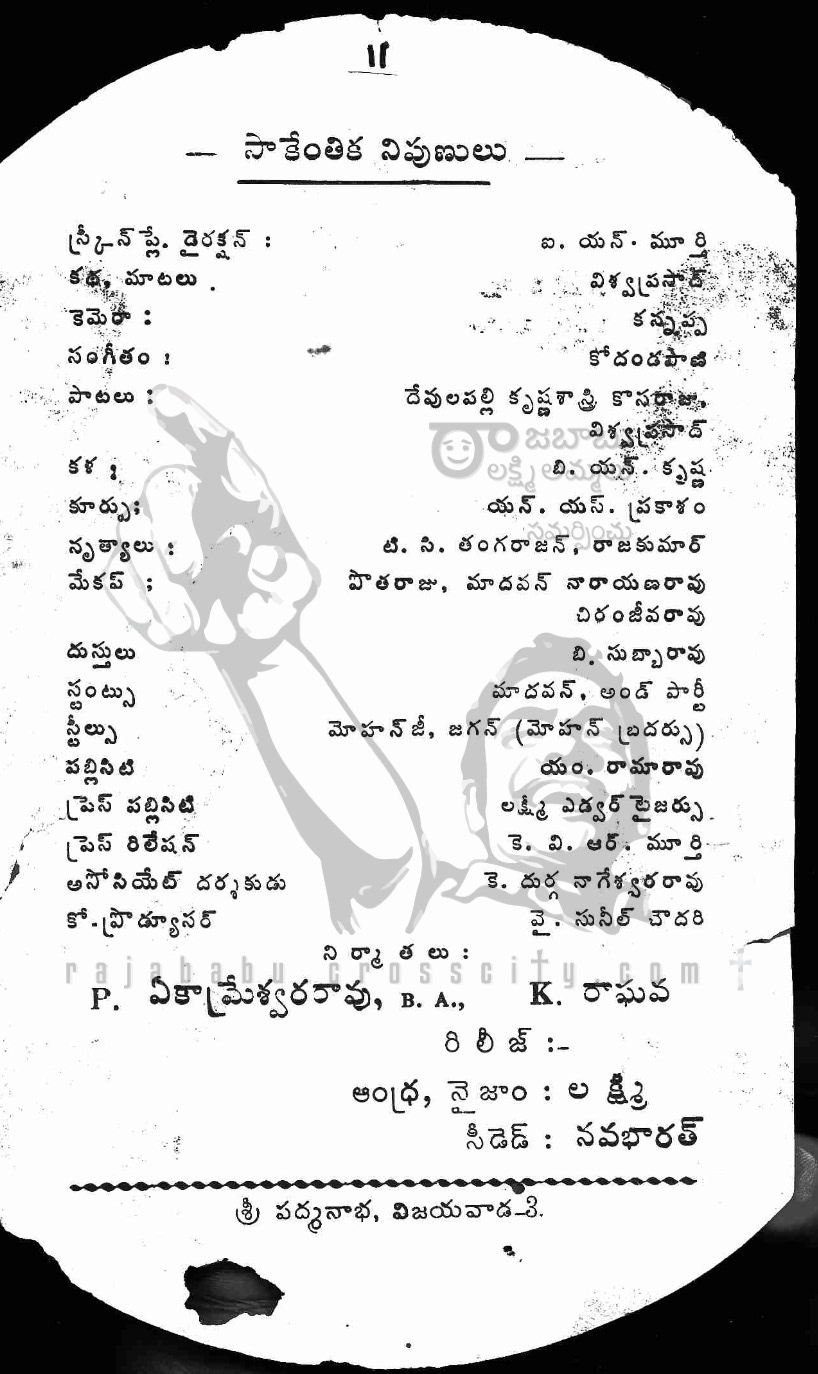 11
— సాకేంతిక నిపుణులు —
స్క్రీన్ ప్లే. డైరక్షన్ : ఐ. యన్. మూర్తి
కథ, మాటలు . విశ్వప్రసాద్
కెమెరా : కన్నప్ప
సంగీతం : కోదండపాణి
పాటలు : దేవులపల్లి కృష్ణశాస్త్రి కొసరాజు,
విశ్వప్రసాద్
కళ ; బి. యన్. కృష్ణ
కూర్పు; యన్. యస్. ప్రకాశం
నృత్యాలు : టి. సి. తంగరాజన్, రాజకుమార్
మేకప్ ; పొతరాజు, మాదవన్ నారాయణరావు
చిరంజీవరావు
దుస్తులు బి. సుబ్బారావు
స్టంట్సు మాదవన్, అండ్ పార్టీ
స్టీల్సు మోహన్‌జీ, జగన్ (మోహన్ బ్రదర్సు)
పబ్లిసిటి యం. రామారావు
ప్రెస్ పబ్లిసిటి లక్ష్మీ ఎడ్వర్ టైజర్సు
ప్రెస్ రిలేషన్ కె. వి. ఆర్. మూర్తి
అసోసియేట్ దర్శకుడు కె. దుర్గ నాగేశ్వరరావు
కో-ప్రొడ్యూసర్ వై. సునీల్ చౌదరి
ని ర్మా త లు :
P. ఏకామ్రేశ్వరరావు, B. A., K. రాఘవ
రి లీ జ్ :-
ఆంధ్ర, నైజాం : ల క్ష్మీ
సీడెడ్ : నవభారత్
శ్రీ పద్మనాభ, విజయవాడ-3.
రాజబాబు
లక్ష్మి అమ్మలు
సమర్పించు
rajababu.crosscity.com